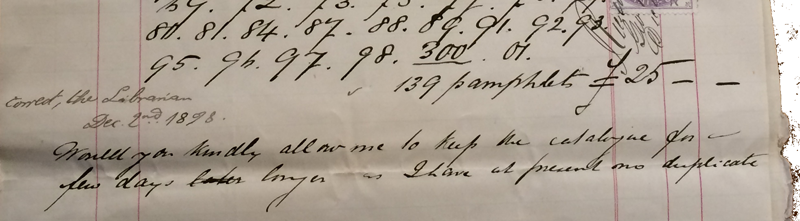 69. 72. 73. 75. 77.
80. 81. 84. 87. 88. 89. 91. 92. 93
95. 96. 97. 98. 300. 01.
139 pamphlets £ 25 — —
Correct, the Librarian
Dec. 2nd 1898.
Would you kindly allow me to keep the catalogue for a
few days later longer as I have at present no duplicate